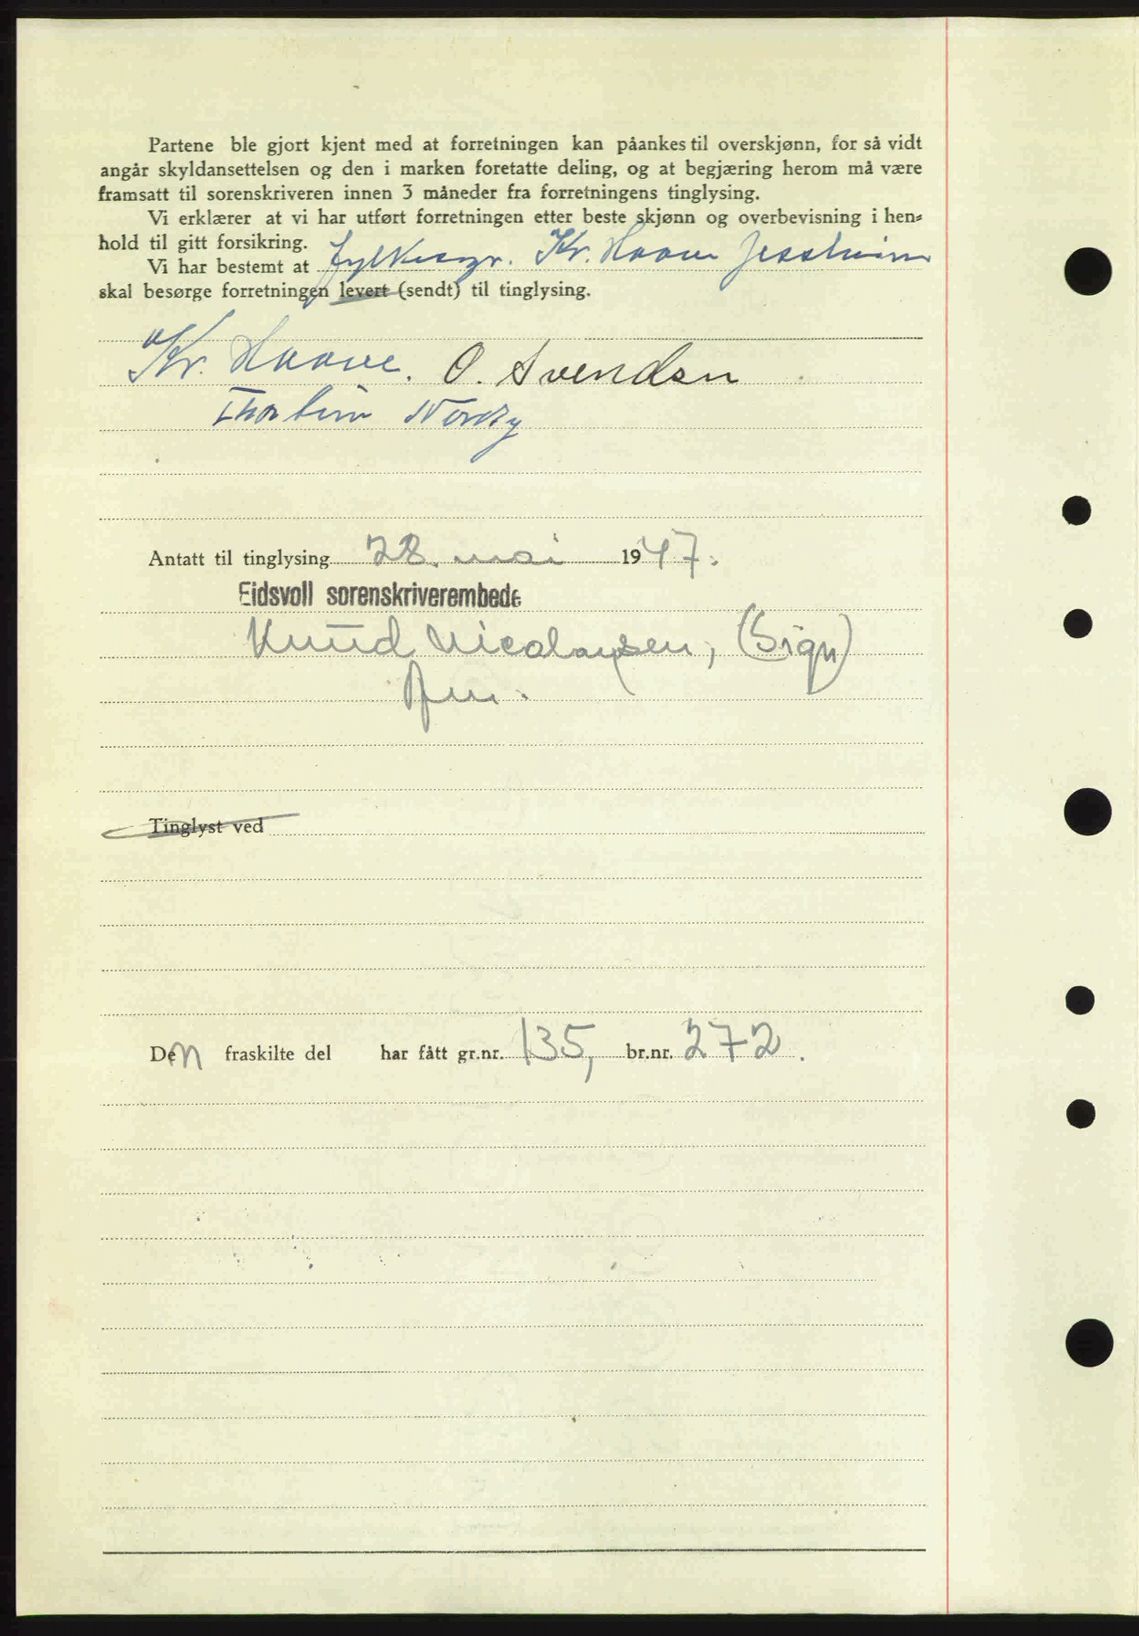 Partene ble gjort kjent med at forretningen kan påankes til overskjønn, for så vidt
angår skyldansettelsen og den i marken foretatte deling, og at begjæring herom må være
framsatt til sorenskriveren innen 3 måneder fra forretningens tinglysing.
Vi erklærer at vi har utført forretningen etter beste skjønn og overbevisning i hen=
hold til gitt forsikring.
Vi har bestemt at Fylkesagr. Kr. Haave Jessheim
skal besørge forretningen levert (sendt) til tinglysing.
Kr. Haave. O. Svendsen
Thorbjørn Nordby
Antatt til tinglysing 28. mai 1947.
Eidsvoll sorenskriverembede
Knud Nicolaysen, (Sign)
fm.
Tinglyst ved
Den fraskilte del har fått gr.nr. 135, br.nr. 272.